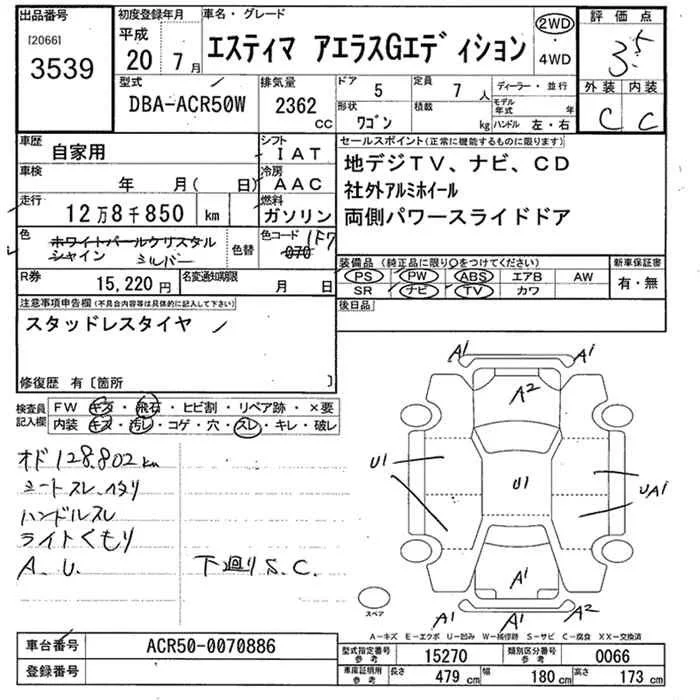 出品番号
[2066]
3539
初度登録年月
平成
20 7月
車名・グレード
エスティマ アエラスGエディション
2WD
・
4WD
評価点
3.5
外装 内装
C C
型式
DBA-ACR50W
排気量
2362
cc
ドア
5
定員
7人
形状
ワゴン
積載
kg
ディーラー・並行
モデル年式 年
ハンドル 左・右
車歴
自家用
シフト
IAT
車検
年 月( 日)
冷房
AAC
走行
12万8千850 km
燃料
ガソリン
色
ホワイトパールクリスタル
シャイン シルバー
色替
色コード
070 1F7
R券
15,220円
名変通知期限
月 日
セールスポイント(正常に機能するものに限ります)
地デジTV、ナビ、CD
社外アルミホイール
両側パワースライドドア
装備品(純正品に限り○をつけてください)
PS PW ABS エアB AW
SR ナビ TV カワ
新車保証書
有・無
後日品
注意事項申告欄(不具合内容等は具体的に記入して下さい)
スタッドレスタイヤ
修復歴 有〔箇所 〕
検査員
記入欄
FW キズ・飛石・ヒビ割・リペア跡・×要
内装 キズ・汚レ・コゲ・穴・スレ・キレ・破レ
オド128,802km
シートスレ、ヘタリ
ハンドルスレ
ライトくもり
A.U. 下廻りS.C.
A1 A1
A2
U1 U1 UA1
A1
A1 A1 A2
スペア
A-キズ E-エクボ U-凹み W-補修跡 S-サビ C-腐食 XX-交換済
車台番号
ACR50-0070886
登録番号
型式指定番号
参考
15270
類別区分番号
参考
0066
車庫証明用
参考
長さ 479cm 幅 180cm 高さ 173cm